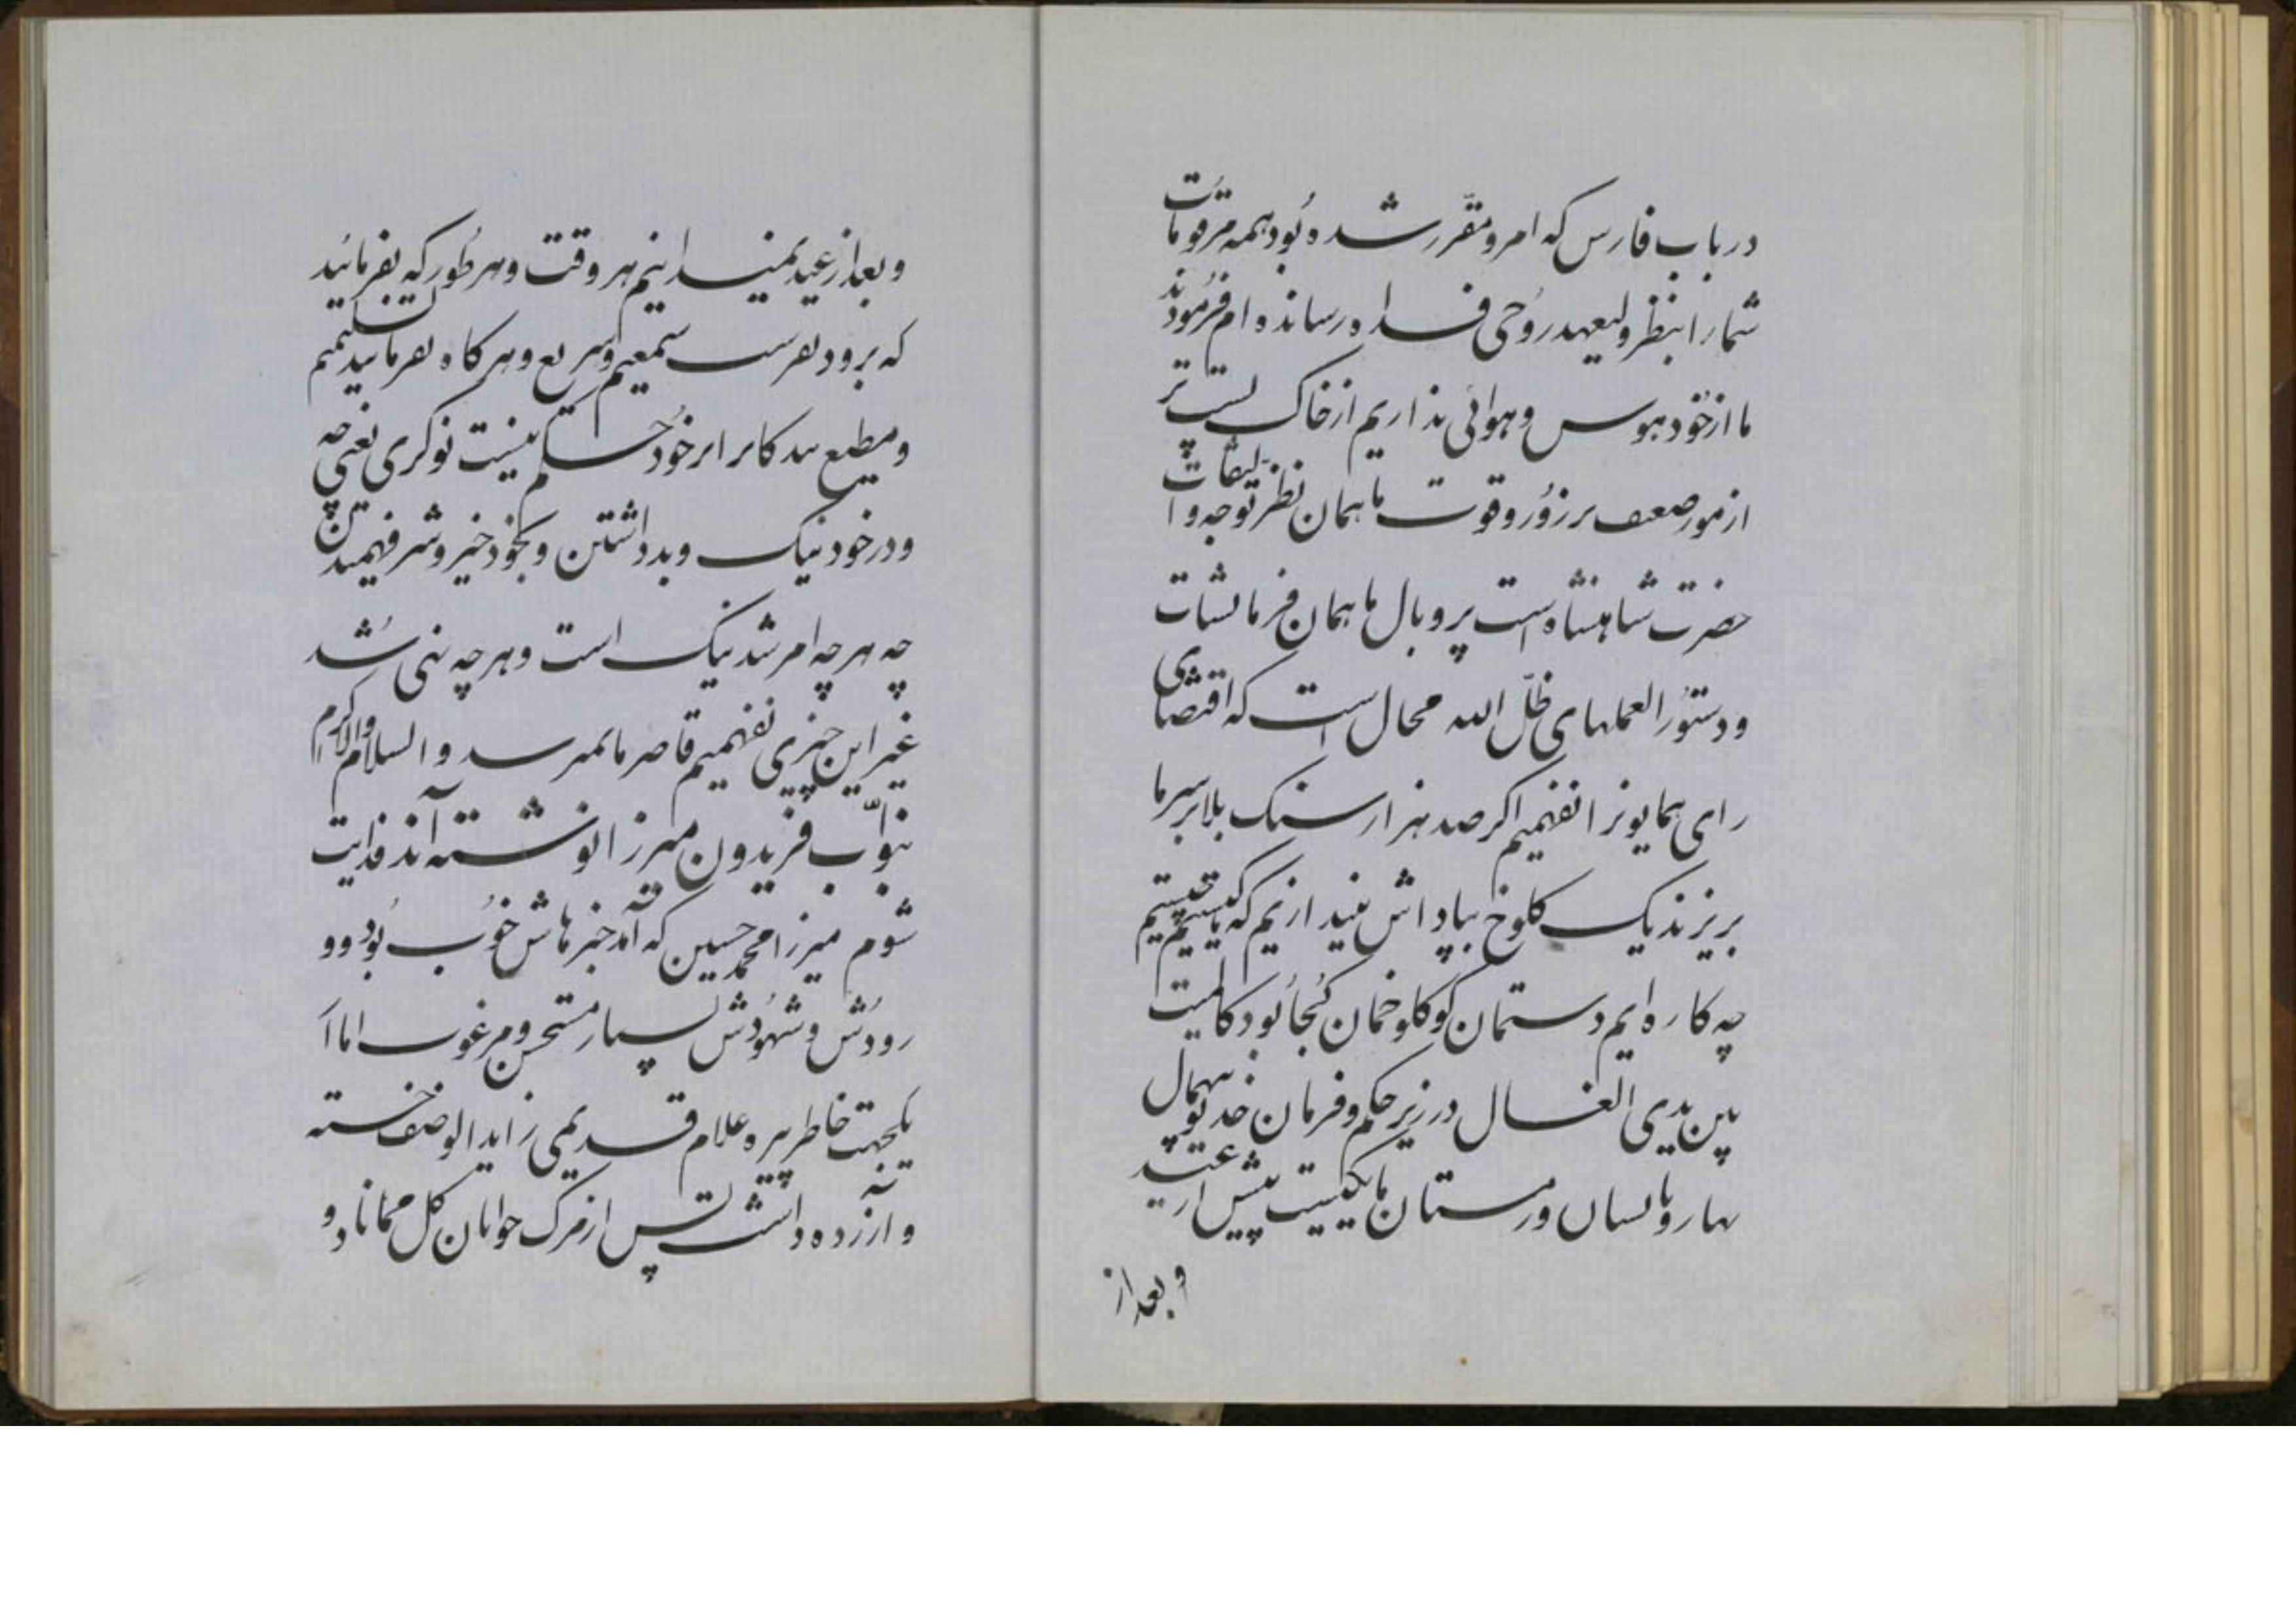 در باب فارس که امر و مقرر شده بود همه مرقومات
شما را بنظر ولیعهد روحی فداه رسانده ام فرمودند
ما از خود هوس و هوائی نداریم از خاک پست تر
از مور ضعیف بر زور و قوت ما همان نظر توجه و التفات
حضرت شاهنشاه است پر و بال ما همان فرمایشات
و دستور العملهای ظل الله محال است که اقتضای
رای همایونرا نفهمیم اگر صد هزار سنک بلا بر سر ما
بریزند یک کلوخ بپاداش بیندازیم که ما کیستیم چیستیم
چه کاره ایم دستمان کو کلوخمان کجا بود کالمیت
بین یدی الغسال در زیر حکم و فرمان خدیو بیهمال
بهار و تابستان و زمستان ما یکیست پیش از عید
و بعد از
و بعد از عید نمیدانیم هر وقت و هر طور که بفرمائید
که برود بفرست سمیعیم و سریع و هر کاه بفرمایید تسلیمیم
و مطیع بندکانرا بر خود حکم نیست نوکری یعنی چه
و در خود نیک و بد داشتن و بخود خیر و شر فهمیدن
چه هر چه امر شد نیک است و هر چه نهی شد
غیر این چیزی نفهمیم قاصر ما نمیرسد والسلام والاکرام
بنواب فریدون میرزا نوشته آند فدایت
شوم میرزا محمد حسین که آمد خبرهاش خوب بود و و
رودش و شهودش بسیار مستحسن و مرغوب اما از
یکجهت خاطر پیره غلام قدیمی زاید الوصف خسته
و آزرده داشت پس از مرک جوانان کل مماناد و